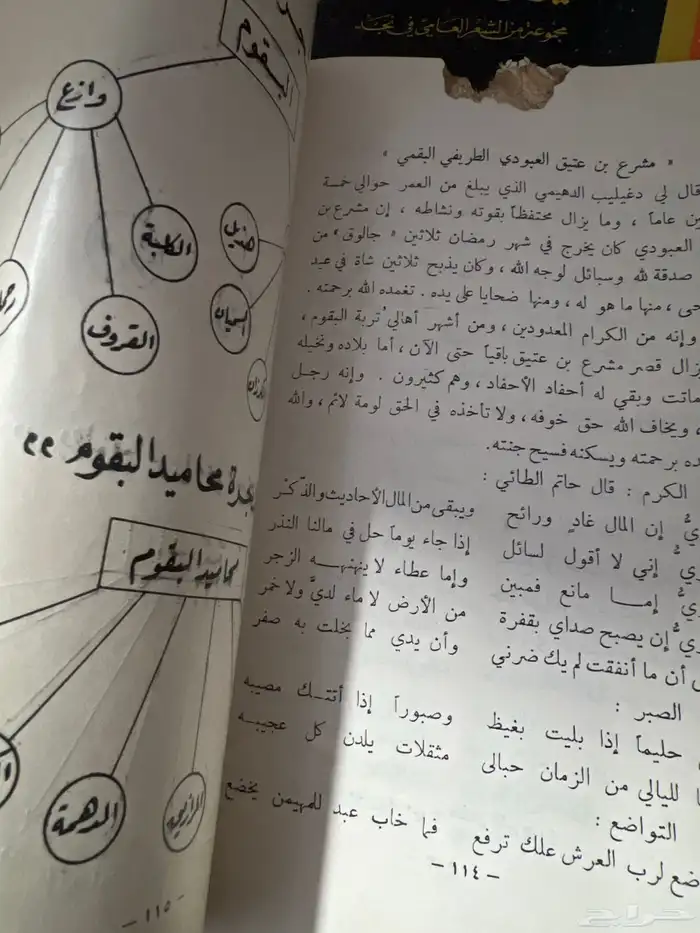 مجموعة من الشعر العامي في نجد
« مشرع بن عتيق العبودي الطريفي البقمي »
قال لي دغيليب الدهيمي الذي يبلغ من العمر حوالي خمسة
ين عاماً ، وما يزال محتفظاً بقوته ونشاطه ، إن مشرع بن
العبودي كان يخرج في شهر رمضان ثلاثين « جالوق » من
صدقة لله وسبائل لوجه الله ، وكان يذبح ثلاثين شاة في عيد
حى ، منها ما هو له ، ومنها ضحايا على يده . تغمده الله برحمته .
وإنه من الكرام المعدودين ، ومن أشهر أهالي تربة البقوم ،
يزال قصر مشرع بن عتيق باقياً حتى الآن ، أما بلاده ونخيله
ماتت وبقي له أحفاد الأحفاد ، وهم كثيرون . وإنه رجل
، ويخاف الله حق خوفه ، ولا تأخذه في الحق لومة لائم ، والله
ده برحمته ويسكنه فسيح جنته.
الكرم : قال حاتم الطائي :
يُّ إن المال غادٍ ورائح ويبقى من المال الأحاديث والذكر
ريُّ إني لا أقول لسائل إذا جاء يوماً حل في مالنا النذر
ريُّ إمـا مانع فمبين وإما عطاء لا ينهنهـه الزجر
ريُّ إن يصبح صداي بقفرة من الأرض لا ماء لديَّ ولا خمر
أن ما أنفقت لم يك ضرني وأن يدي مما بخلت به صفر
الصبر :
حليماً إذا بليت بغيظ وصبوراً إذا أتتـك مصيبه
ليالي من الزمان حبالى مثقلات يلدن كل عجيبـه
التواضع :
ضع لرب العرش علك ترفع فما خاب عبد للمهيمن يخضع
– ١١٤ –
البقوم
وازع
الكلبة
هذيل
القروف
السميان
رحما
جدة محاميد البقوم
محاميد البقوم
الدهمة
– ١١٥ –
حراج